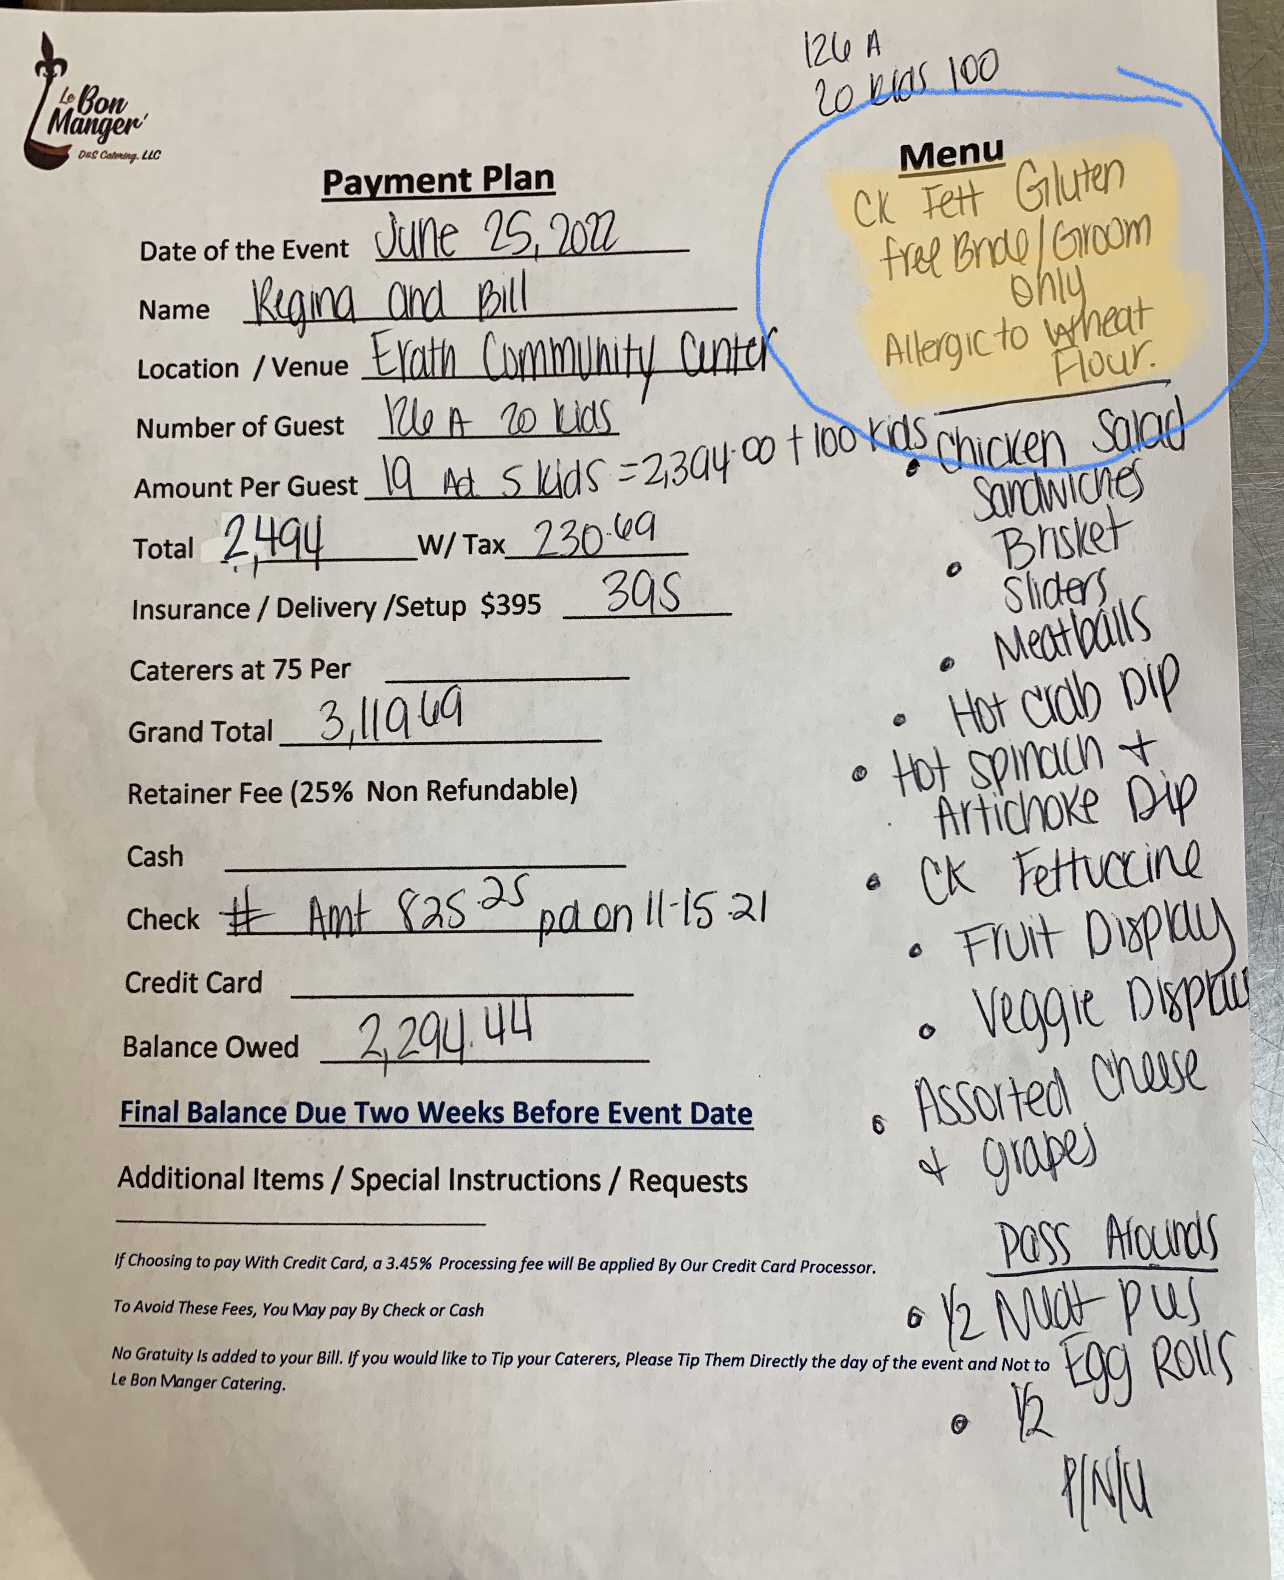 Le Bon
Manger'
D&S Catering, LLC
126 A
20 kids 100
Payment Plan
Date of the Event June 25, 2022
Name Regina and Bill
Location / Venue Erath Community Center
Number of Guest 126 A 20 kids
Amount Per Guest 19 Ad 5 kids = 2,394.00 + 100 kids
Total 2,494 W/ Tax 230.69
Insurance / Delivery /Setup $395 395
Caterers at 75 Per
Grand Total 3,119.69
Retainer Fee (25% Non Refundable)
Cash
Check # Amt 825.25 pd on 11-15-21
Credit Card
Balance Owed 2,294.44
Final Balance Due Two Weeks Before Event Date
Additional Items / Special Instructions / Requests
If Choosing to pay With Credit Card, a 3.45% Processing fee will Be applied By Our Credit Card Processor.
To Avoid These Fees, You May pay By Check or Cash
No Gratuity Is added to your Bill. If you would like to Tip your Caterers, Please Tip Them Directly the day of the event and Not to
Le Bon Manger Catering.
Menu
CK Fett Gluten
free Bride/Groom
only
Allergic to Wheat
Flour.
• Chicken Salad
Sandwiches
• Brisket
Sliders
• Meatballs
• Hot crab Dip
• Hot spinach +
Artichoke Dip
• CK Fettuccine
• Fruit Display
• Veggie Display
• Assorted Cheese
+ grapes
Pass Arounds
• 1/2 Meat pies
Egg Rolls
• 1/2
P/N/U